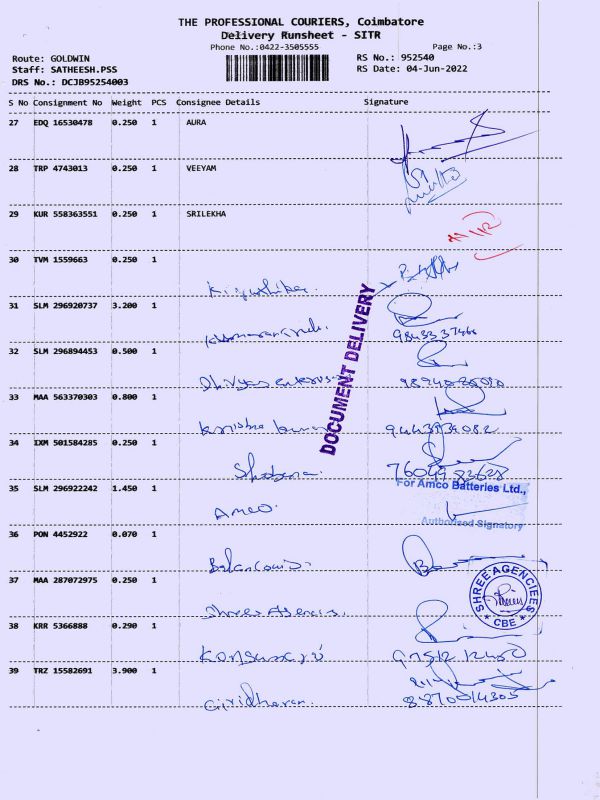 THE PROFESSIONAL COURIERS, Coimbatore
Delivery Runsheet - SITR
Phone No.:0422-3505555
Page No.:3
Route: GOLDWIN
Staff: SATHEESH.PSS
DRS No.: DCJB95254003
RS No.: 952540
RS Date: 04-Jun-2022
S No Consignment No Weight PCS Consignee Details Signature
27 EDQ 16530478 0.250 1 AURA
28 TRP 4743013 0.250 1 VEEYAM
29 KUR 558363551 0.250 1 SRILEKHA
30 TVM 1559663 0.250 1
31 SLM 296920737 3.200 1
9843337466
32 SLM 296894453 0.500 1
33 MAA 563370303 0.800 1
9443939082
34 IXM 501584285 0.250 1
Shobana.
7604983628
35 SLM 296922242 1.450 1
AMCO.
For Amco Batteries Ltd.,
Authorised Signatory
36 PON 4452922 0.070 1
37 MAA 287072975 0.250 1
Shree Agencies.
SHREE AGENCIEES
* CBE *
38 KRR 5366888 0.290 1
39 TRZ 15582691 3.900 1
Giridharan.
8870014305
DOCUMENT DELIVERY